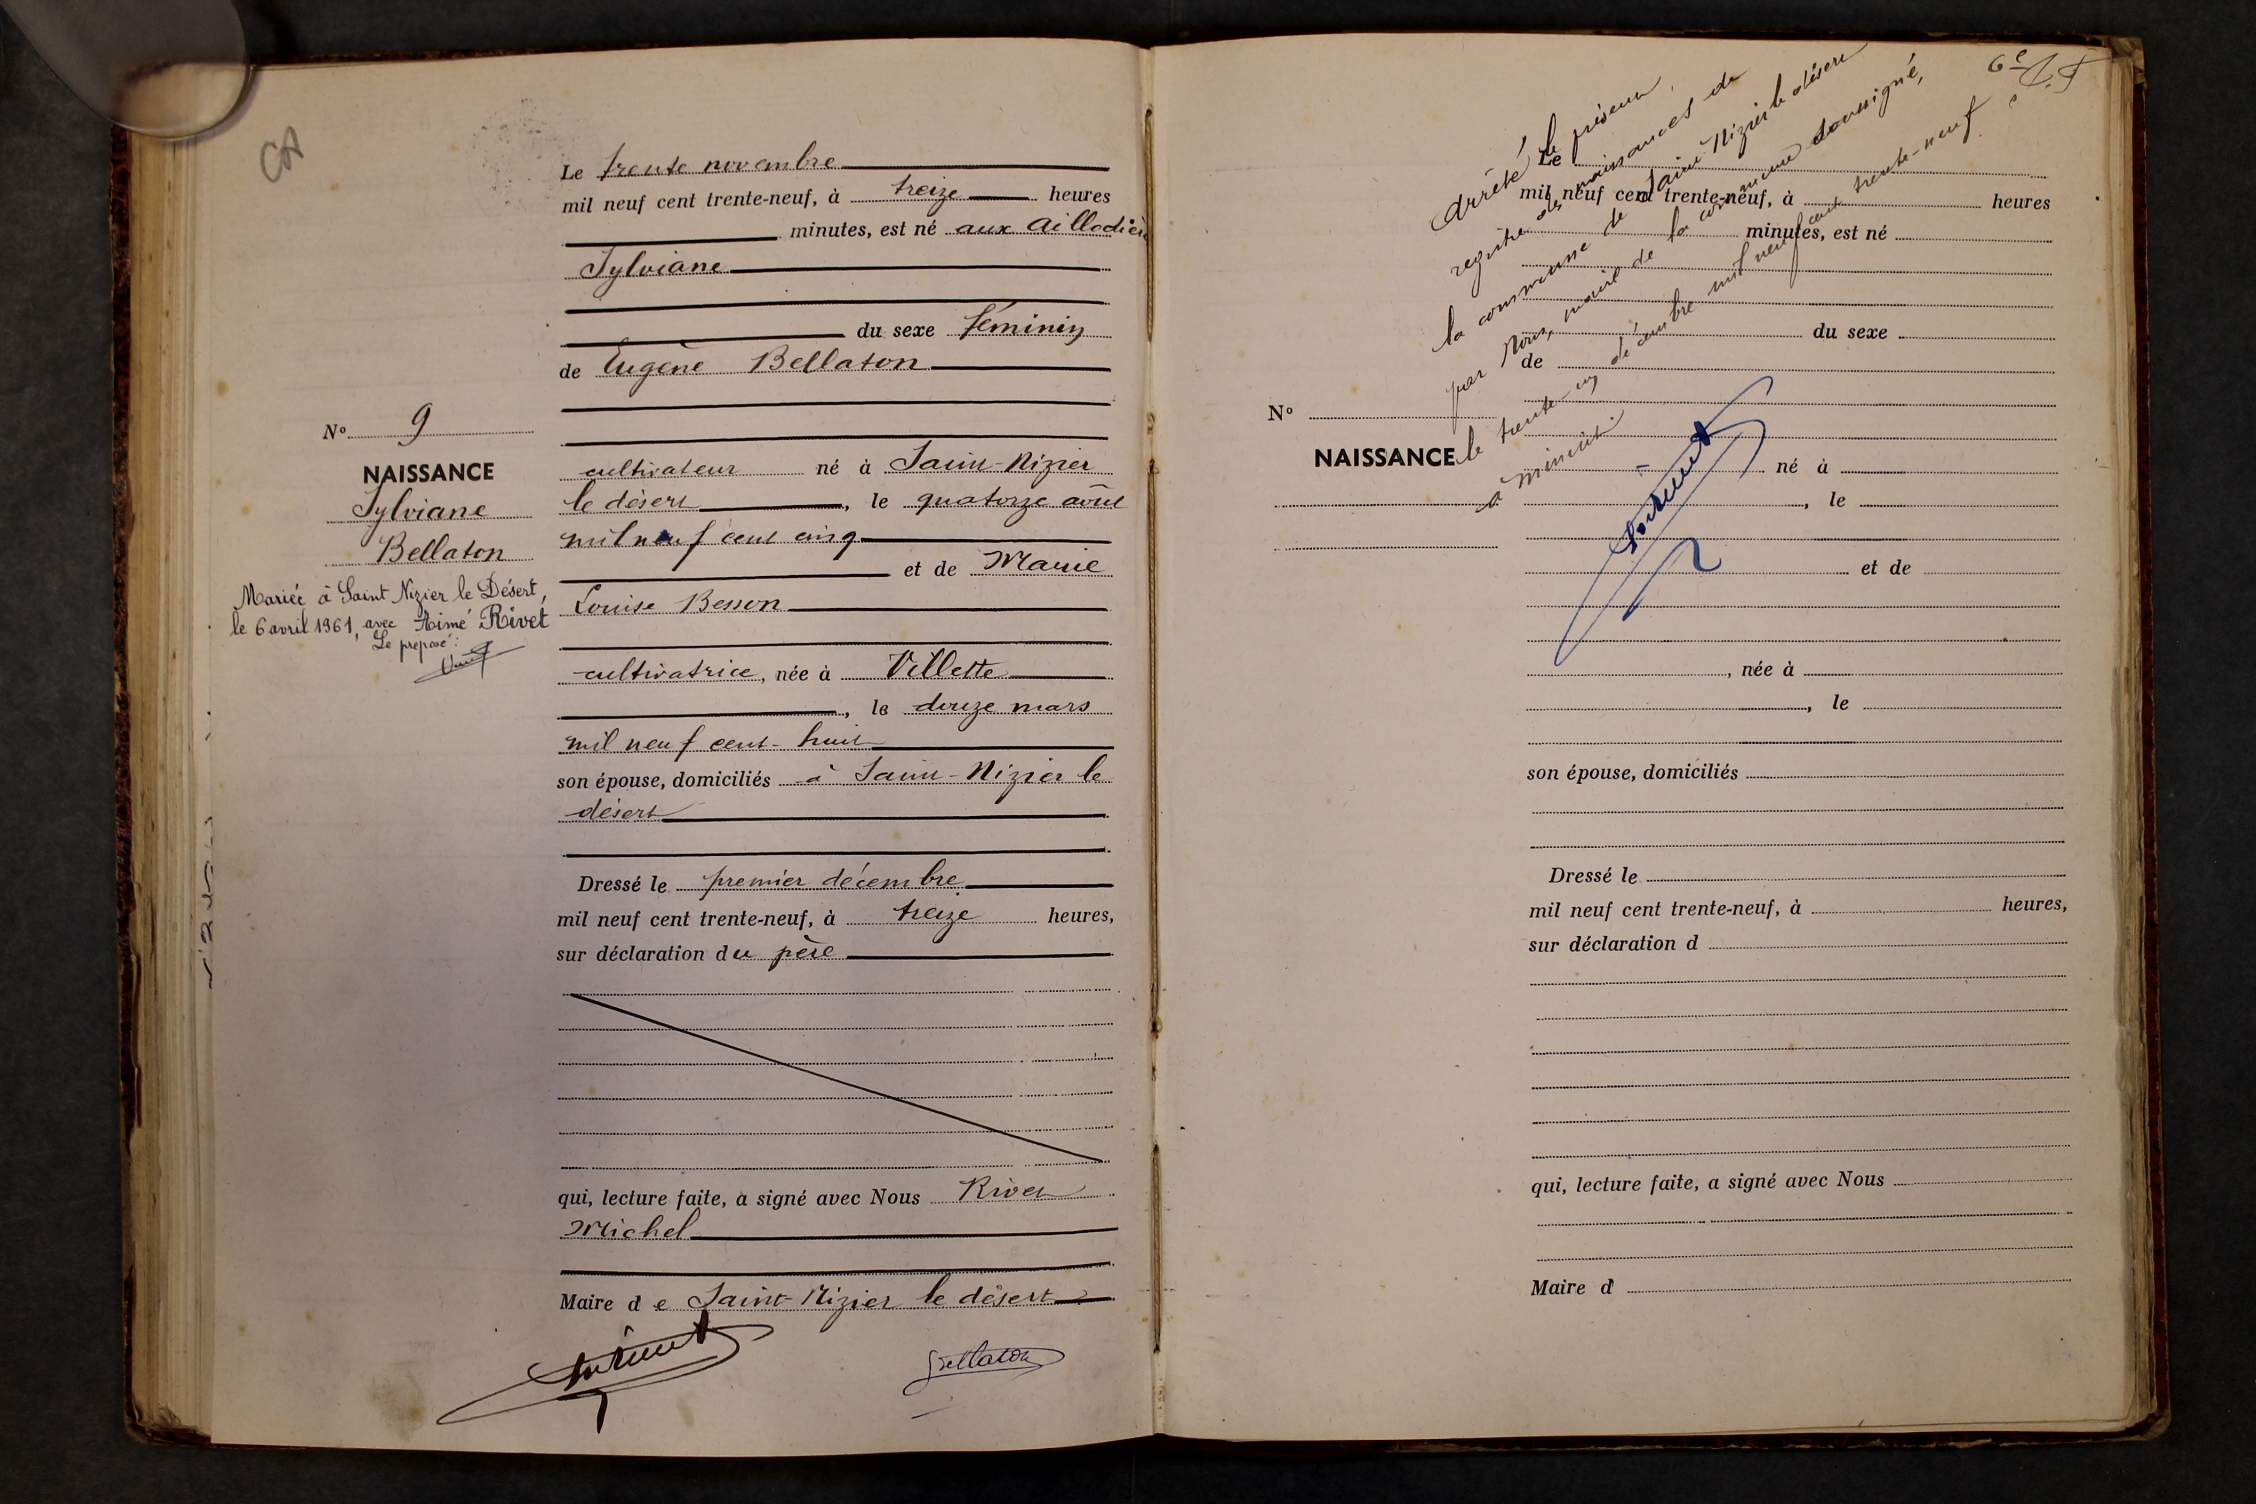 Le trente novembre
mil neuf cent trente-neuf, à treize heures
minutes, est né aux
Sylviane
du sexe féminin
de Eugène Bellaton
cultivateur né à Saint-Nizier
le désert, le quatorze août
mil neuf cent cinq
et de Marie
Louise Besson
cultivatrice, née à Villette
, le douze mars
mil neuf cent-huit
son épouse, domiciliés à Saint-Nizier le
désert
Dressé le premier décembre
mil neuf cent trente-neuf, à treize heures,
sur déclaration du père
qui, lecture faite, a signé avec Nous
Michel
Maire de Saint-Nizier le désert
Bellaton
N° 9
NAISSANCE
Sylviane
Bellaton
Mariée à Saint Nizier le Désert,
le 6 avril 1961, avec Aimé Rivet
Le préposé:
Arrêté le présent
registre des naissances de
la commune de Saint-Nizier le désert
par Nous, maire de la commune soussigné,
le trente-un décembre mil neuf cent trente-neuf
à minuit.
Le
mil neuf cent trente-neuf, à heures
minutes, est né
du sexe
de
N°
NAISSANCE
né à
, le
et de
, née à
, le
son épouse, domiciliés
Dressé le
mil neuf cent trente-neuf, à heures,
sur déclaration d
qui, lecture faite, a signé avec Nous
Maire d